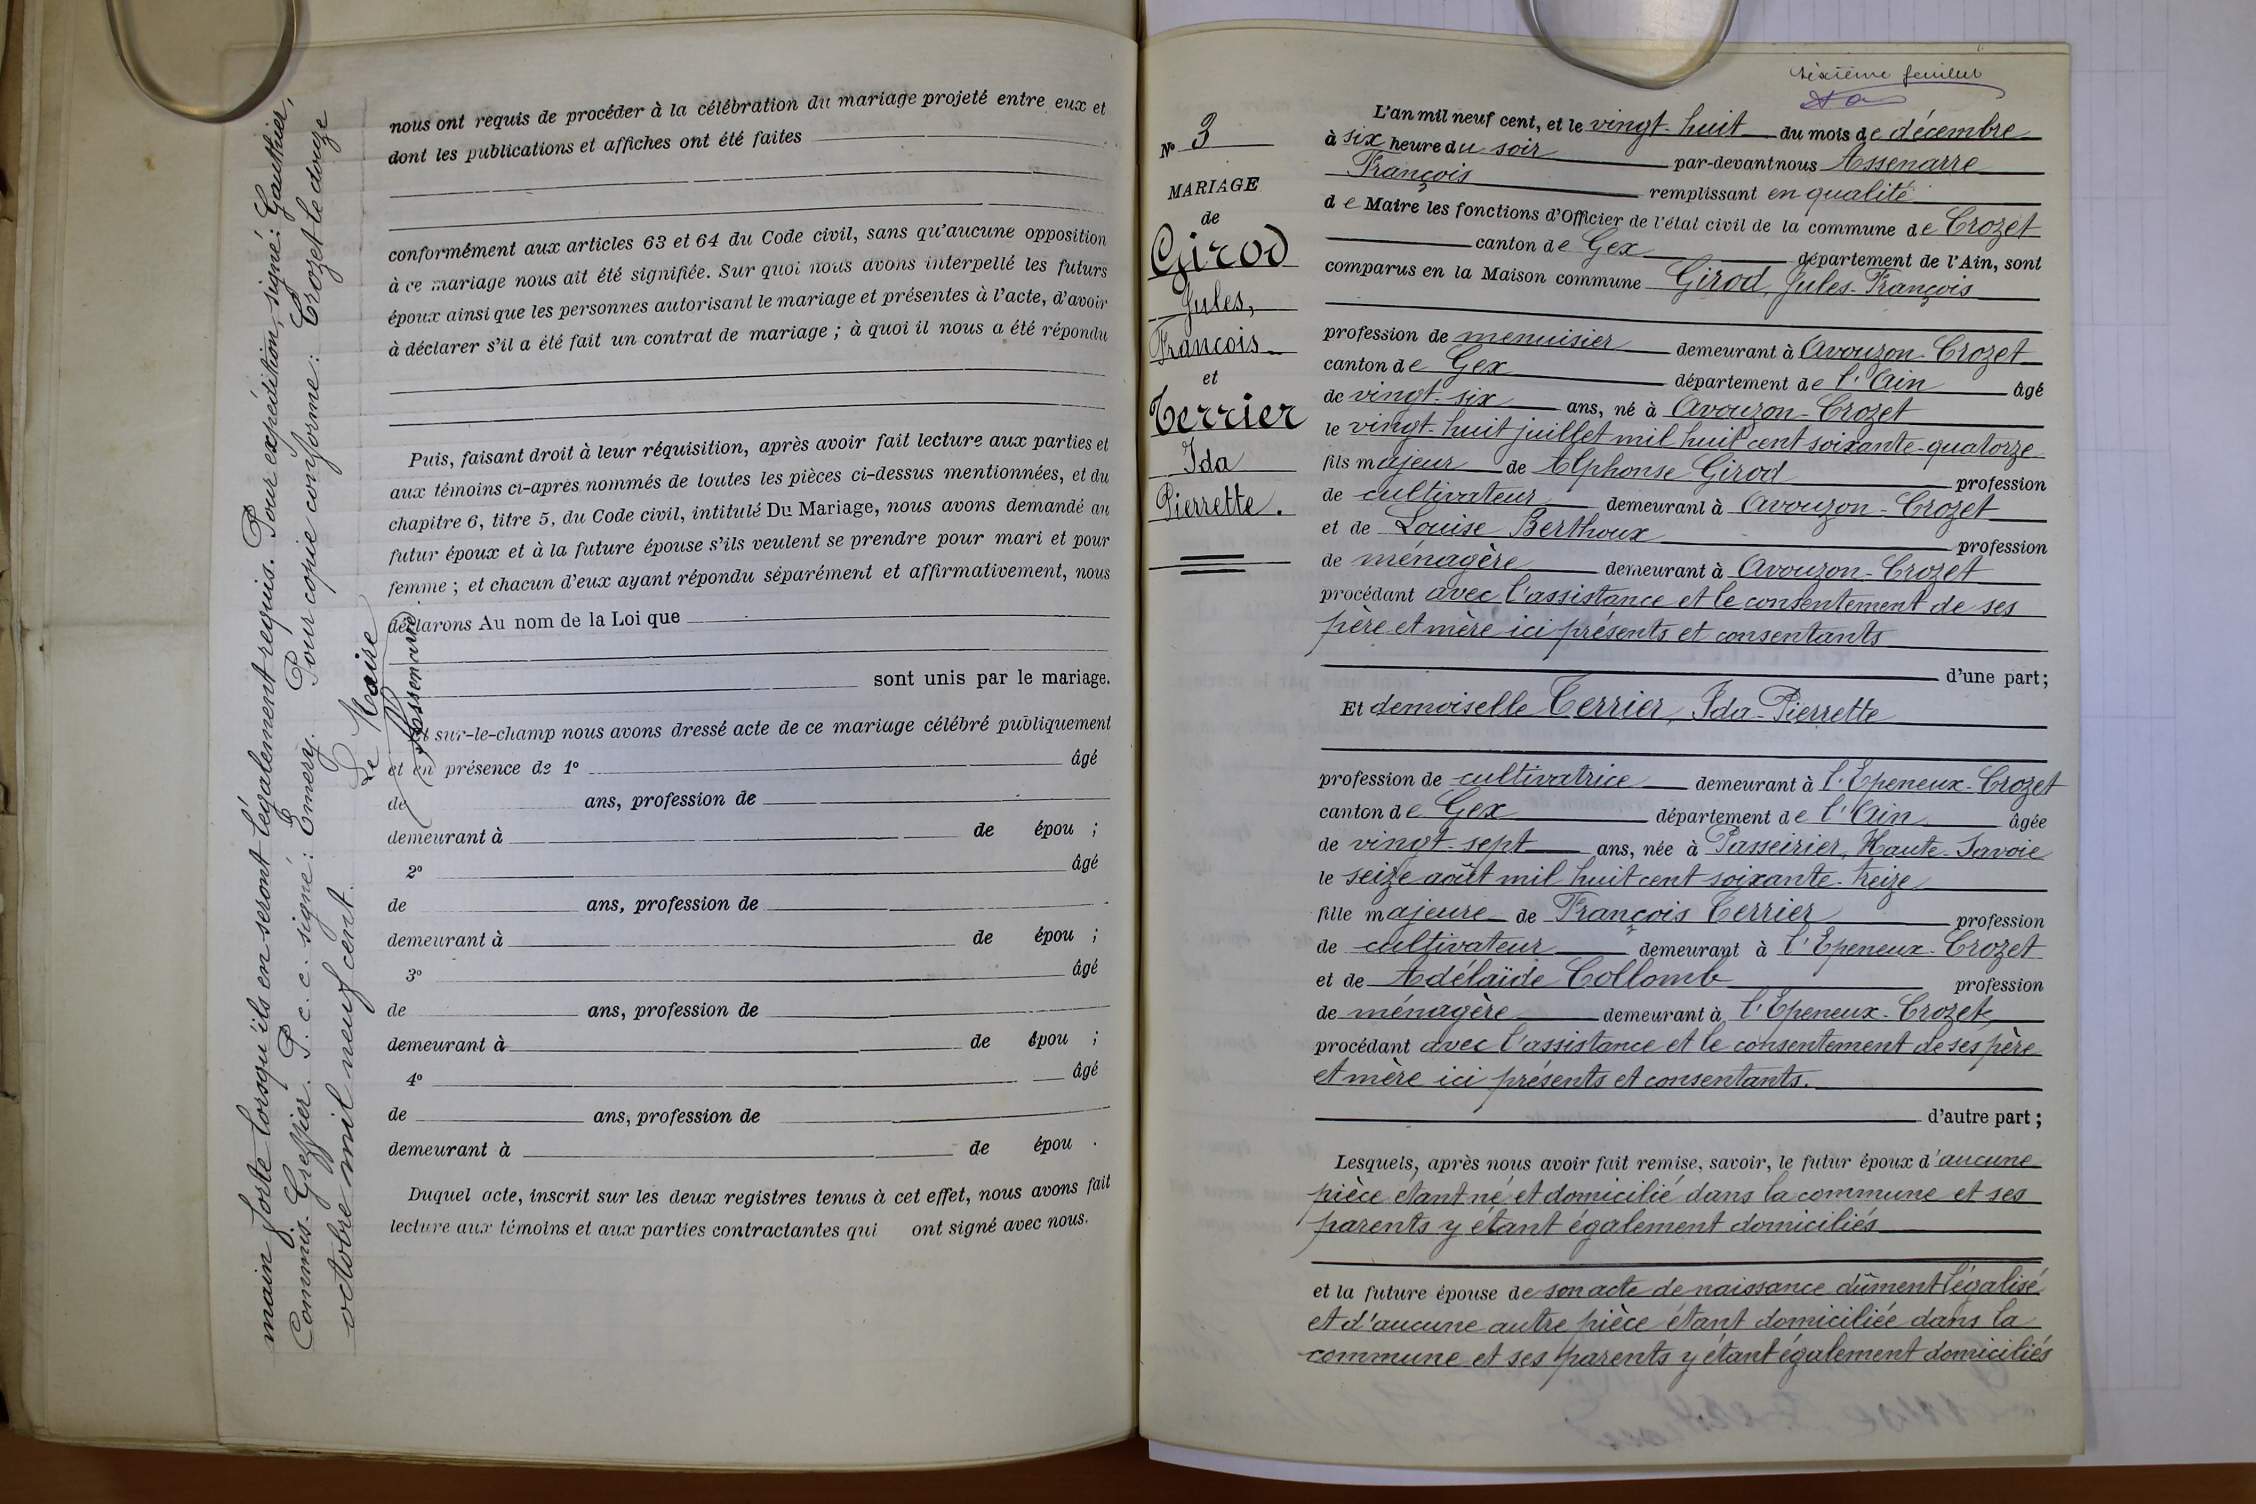 main forte lorsqu'ils en seront légalement requis. Pour expédition, signé: Gauthier,
Commis-Greffier. P. c. c. signé: E Emery. Pour copie conforme: Crozet le douze
octobre mil neuf cent.
Le Maire
Assenarre
nous ont requis de procéder à la célébration du mariage projeté entre eux et
dont les publications et affiches ont été faites
conformément aux articles 63 et 64 du Code civil, sans qu'aucune opposition
à ce mariage nous ait été signifiée. Sur quoi nous avons interpellé les futurs
époux ainsi que les personnes autorisant le mariage et présentes à l'acte, d'avoir
à déclarer s'il a été fait un contrat de mariage ; à quoi il nous a été répondu
Puis, faisant droit à leur réquisition, après avoir fait lecture aux parties et
aux témoins ci-après nommés de toutes les pièces ci-dessus mentionnées, et du
chapitre 6, titre 5, du Code civil, intitulé Du Mariage, nous avons demandé au
futur époux et à la future épouse s'ils veulent se prendre pour mari et pour
femme ; et chacun d'eux ayant répondu séparément et affirmativement, nous
déclarons Au nom de la Loi que
sont unis par le mariage.
Et sur-le-champ nous avons dressé acte de ce mariage célébré publiquement
et en présence de 1° âgé
de ans, profession de
demeurant à de épou ;
2° âgé
de ans, profession de
demeurant à de épou ;
3° âgé
de ans, profession de
demeurant à de épou ;
4° âgé
de ans, profession de
demeurant à de épou .
Duquel acte, inscrit sur les deux registres tenus à cet effet, nous avons fait
lecture aux témoins et aux parties contractantes qui ont signé avec nous.
sixième feuillet
N° 3
MARIAGE
de
Girod
Jules,
François
et
Terrier
Ida
Pierrette.
L'an mil neuf cent, et le vingt-huit du mois de décembre
à six heure du soir par-devant nous Assenarre
François remplissant en qualité
de Maire les fonctions d'Officier de l'état civil de la commune de Crozet
canton de Gex département de l'Ain, sont
comparus en la Maison commune Girod, Jules-François
profession de menuisier demeurant à Avouzon-Crozet
canton de Gex département de l'Ain âgé
de vingt-six ans, né à Avouzon-Crozet
le vingt-huit juillet mil huit cent soixante-quatorze
fils majeur de Alphonse Girod profession
de cultivateur demeurant à Avouzon-Crozet
et de Louise Berthoux profession
de ménagère demeurant à Avouzon-Crozet
procédant avec l'assistance et le consentement de ses
père et mère ici présents et consentants
d'une part;
Et demoiselle Terrier, Ida-Pierrette
profession de cultivatrice demeurant à l'Epeneux-Crozet
canton de Gex département de l'Ain âgée
de vingt-sept ans, née à Passeirier, Haute-Savoie
le seize août mil huit cent soixante-treize
fille majeure de François Terrier profession
de cultivateur demeurant à l'Epeneux-Crozet
et de Adélaïde Collomb profession
de ménagère demeurant à l'Epeneux-Crozet,
procédant avec l'assistance et le consentement de ses père
et mère ici présents et consentants.
d'autre part ;
Lesquels, après nous avoir fait remise, savoir, le futur époux d'aucune
pièce étant né et domicilié dans la commune et ses
parents y étant également domiciliés
et la future épouse de son acte de naissance dûment légalisé
et d'aucune autre pièce étant domiciliée dans la
commune et ses parents y étant également domiciliés